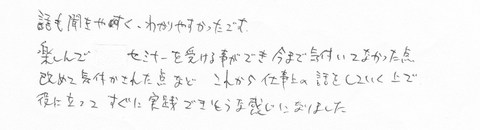 話も聞きやすく、わかりやすかったです。
楽しんで セミナーを受ける事ができ今まで気付いてなかった点
改めて気付かされた点など これから仕事上の話をしていく上で
役に立って すぐに実践できそうな感じになりました